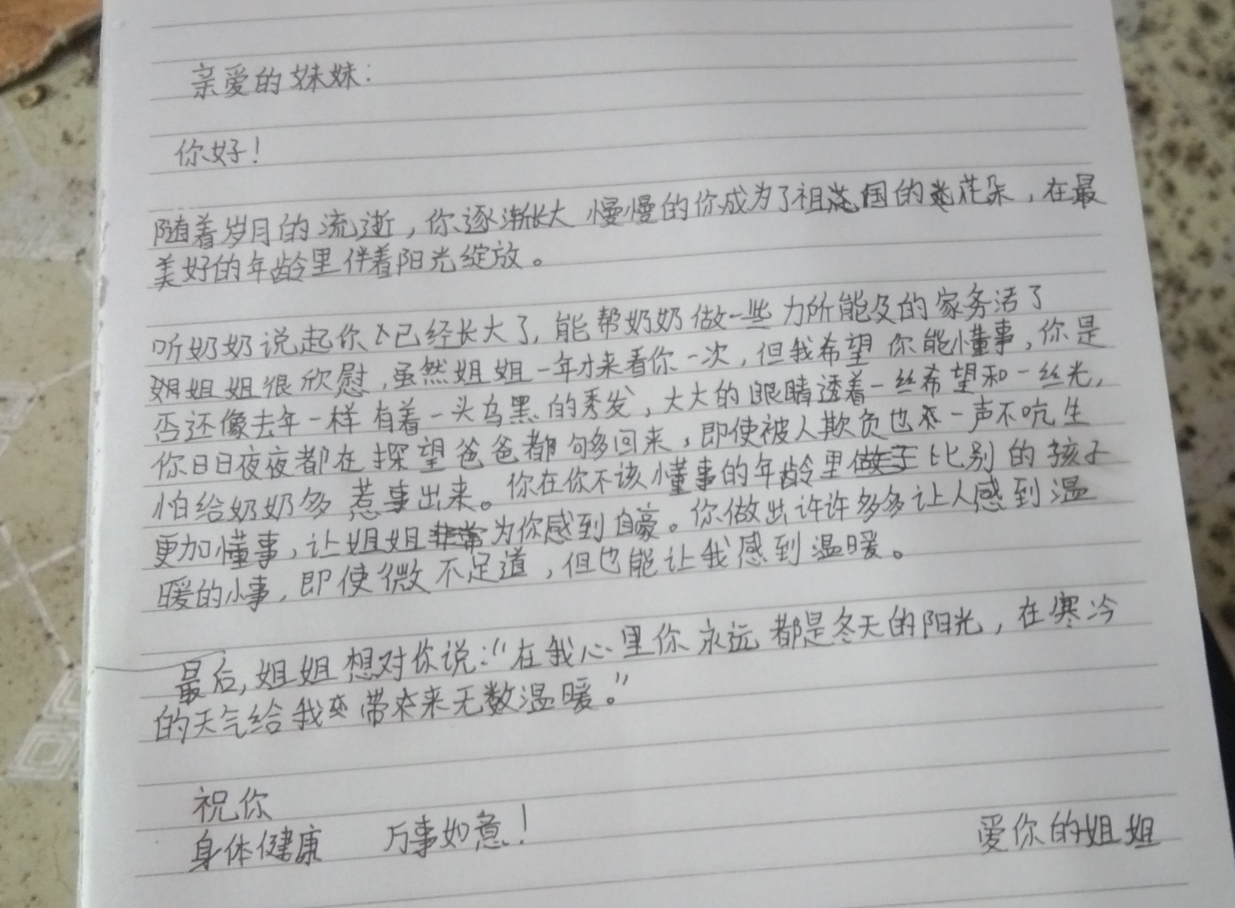 亲爱的妹妹:
你好!
随着岁月的流逝,你逐渐长大 慢慢的你成为了祖国的花朵,在最
美好的年龄里伴着阳光绽放。
听奶奶说起你已经长大了,能帮奶奶做一些力所能及的家务活了
姐姐很欣慰,虽然姐姐一年才来看你一次,但我希望你能懂事,你是
否还像去年一样有着一头乌黑的秀发,大大的眼睛透着一丝希望和一丝光,
你日日夜夜都在探望爸爸都够回来,即使被人欺负也不一声不吭生
怕给奶奶多惹事出来。你在你不该懂事的年龄里比别的孩子
更加懂事,让姐姐为你感到自豪。你做出许许多多让人感到温
暖的小事,即使微不足道,但也能让我感到温暖。
最后,姐姐想对你说:“在我心里你永远都是冬天的阳光,在寒冷
的天气给我带来无数温暖。”
祝你
身体健康 万事如意!
爱你的姐姐